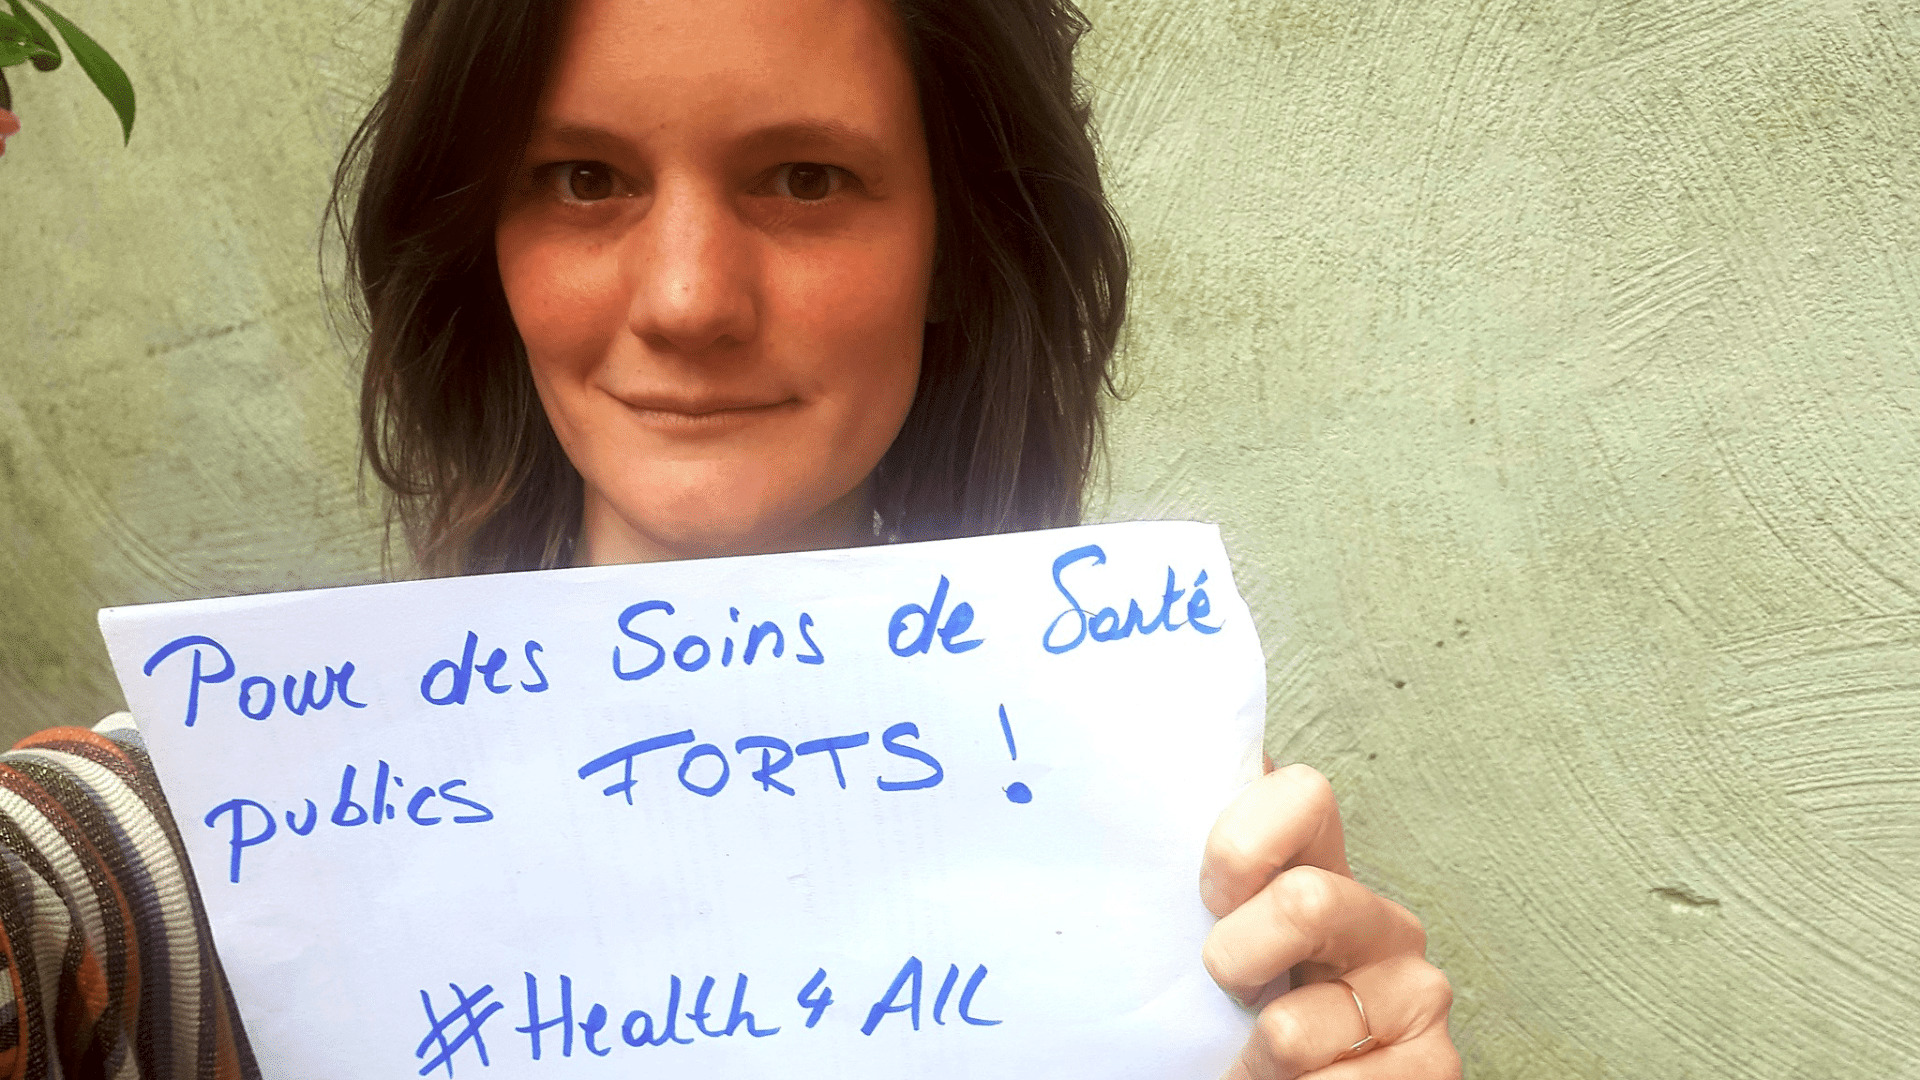 Pour des Soins de Santé
publics FORTS !
#Health4All